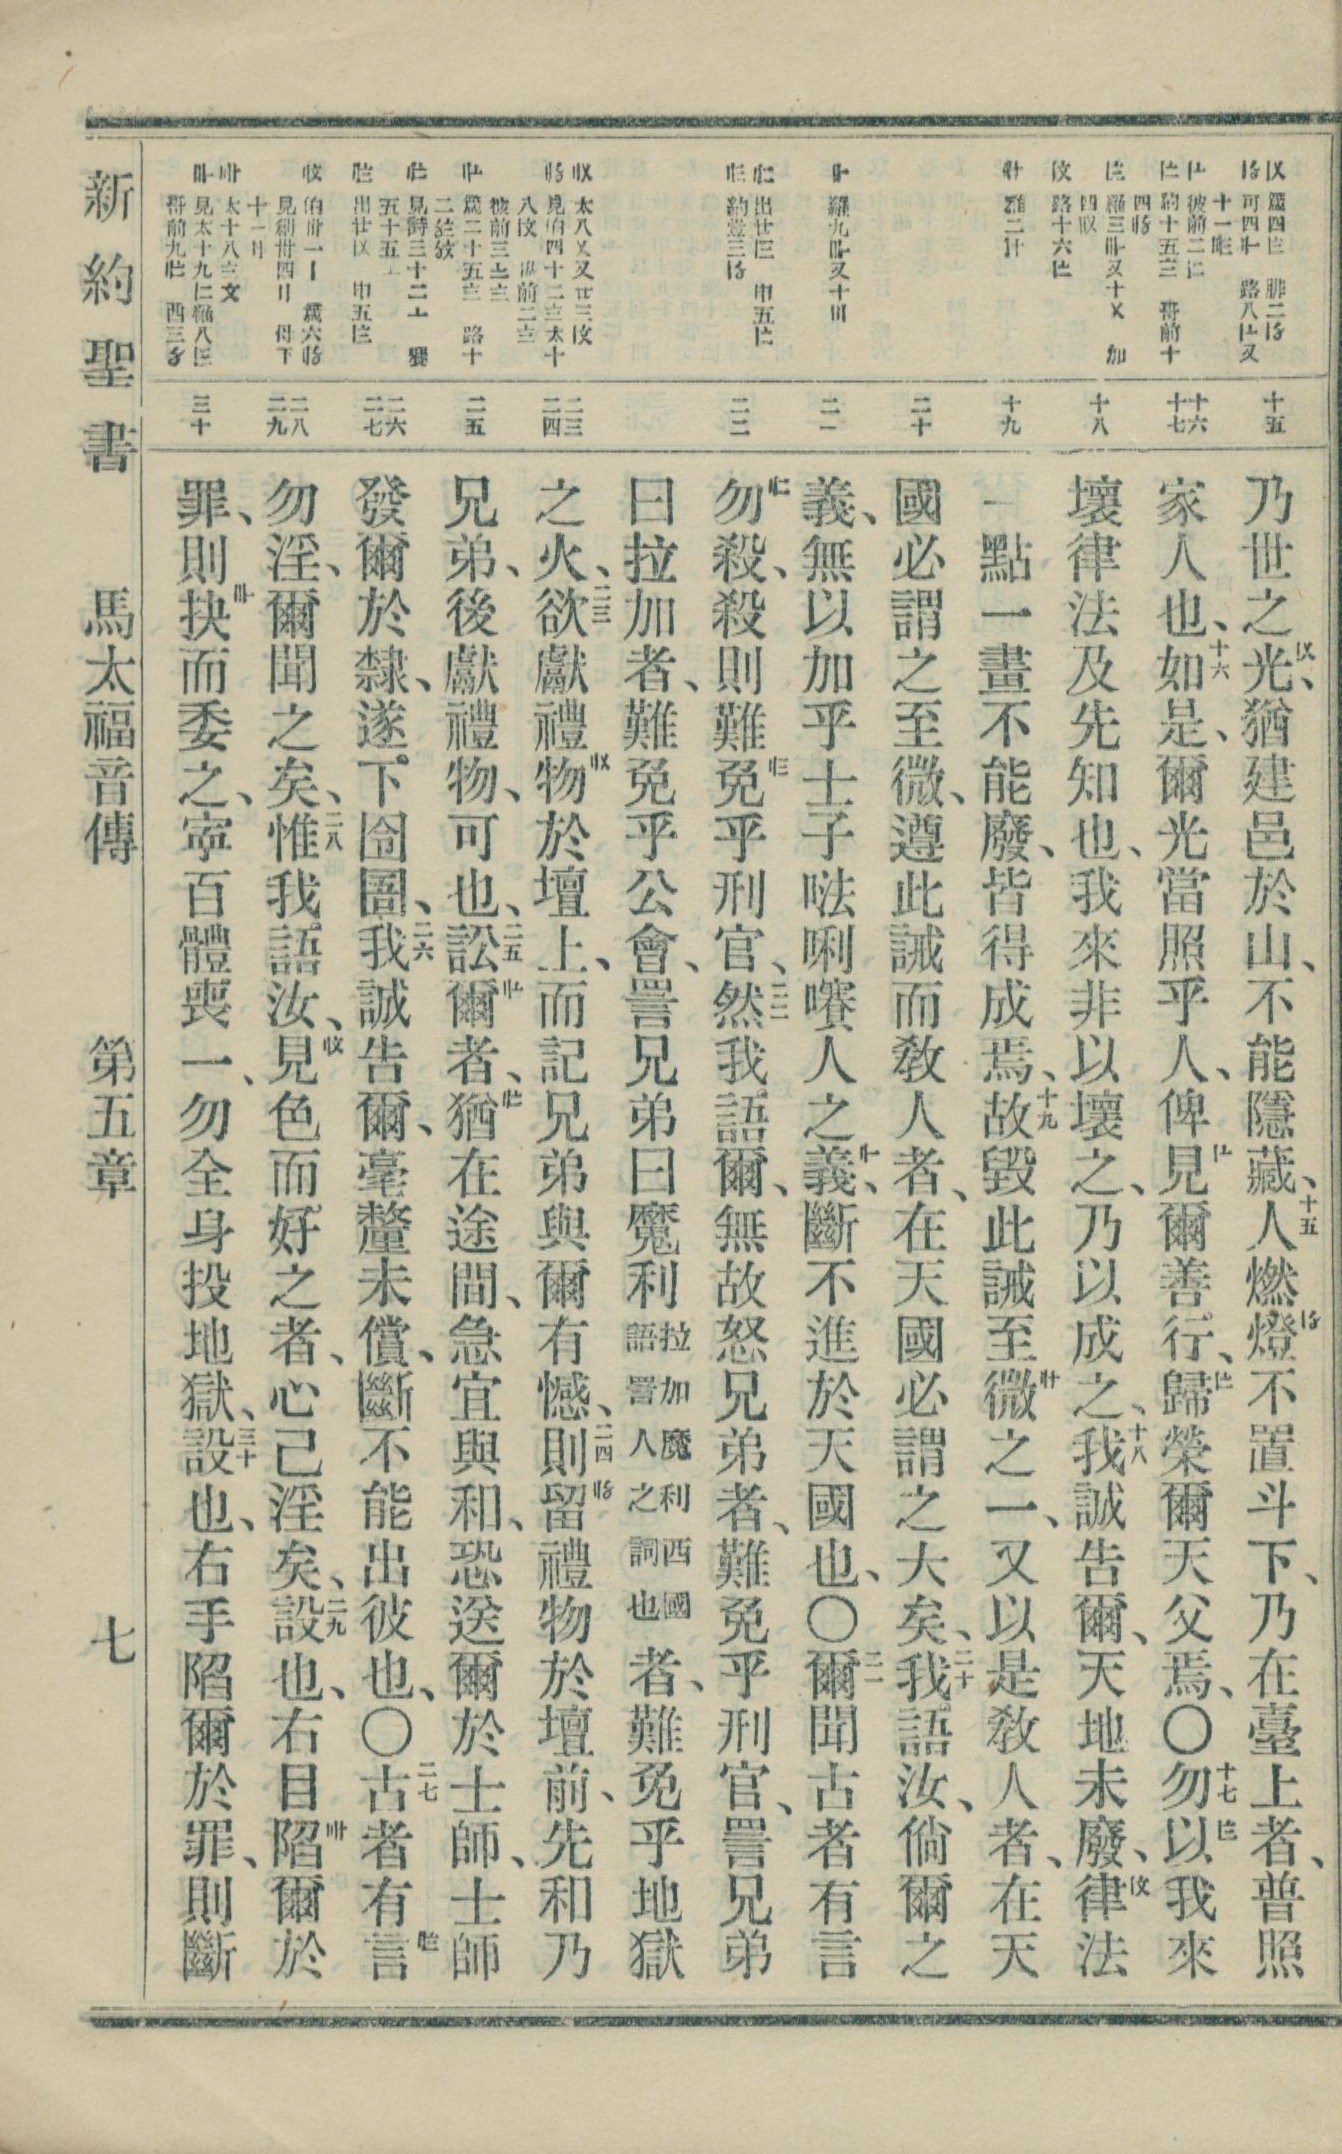 乃世之光、猶建邑於山、不能隱藏、十五人燃燈不置斗下、乃在臺上者、普照
家人也、十六如是、爾光當照乎人、俾見爾善行、歸榮爾天父焉、〇十七勿以我來
壞律法及先知也、我來非以壞之、乃以成之、十八我誠告爾、天地未廢、律法
一點一畫不能廢、皆得成焉、十九故毀此誡至微之一、又以是教人者、在天
國必謂之至微、遵此誡而教人者、在天國必謂之大矣、二十我語汝、倘爾之
義、無以加乎士子𠵽唎㘔人之義、斷不進於天國也、〇二一爾聞古者有言
勿殺、殺則難免乎刑官、二二然我語爾、無故怒兄弟者、難免乎刑官、詈兄弟
曰拉加者、難免乎公會、詈兄弟曰魔利拉加魔利西國語詈人之詞也者、難免乎地獄
之火、二三欲獻禮物於壇上、而記兄弟與爾有憾、二四則留禮物於壇前、先和乃
兄弟、後獻禮物、可也、二五訟爾者、猶在途間、急宜與和、恐送爾於士師、士師
發爾於隸、遂下囹圄、二六我誠告爾、毫釐未償、斷不能出彼也、〇二七古者有言
勿淫、爾聞之矣、二八惟我語汝、見色而好之者、心已淫矣、二九設也、右目陷爾於
罪、則抉而委之、寧百體喪一、勿全身投地獄、三十設也、右手陷爾於罪、則斷
十五
十六
十七
十八
十九
二十
二一
二二
二三
二四
二五
二六
二七
二八
二九
三十
新約聖書 馬太福音傳 第五章 七